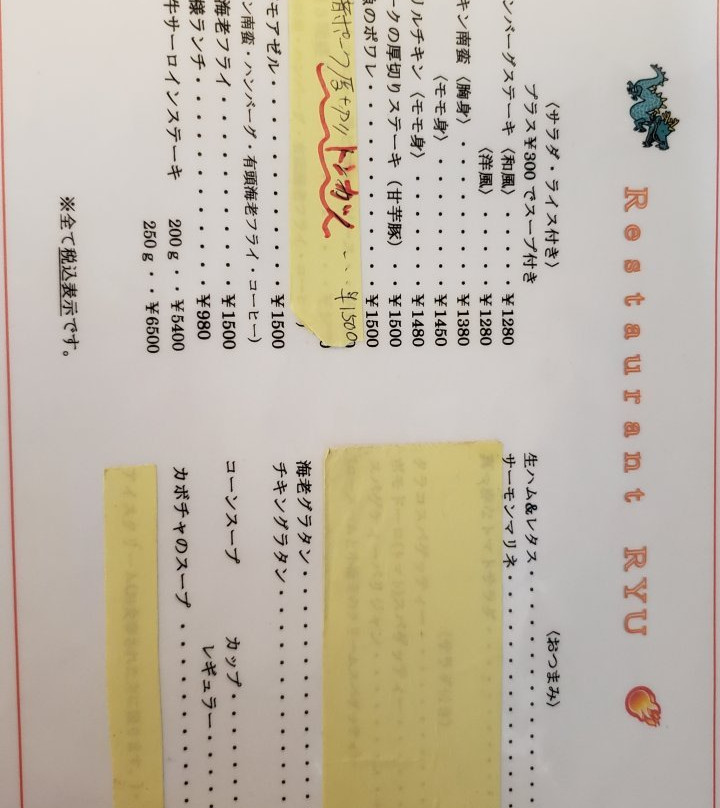 Restaurant RYU
〈サラダ・ライス付き〉
プラス¥300でスープ付き
ンバーグステーキ〈和風〉・・・・¥1280
〈洋風〉・・・・¥1280
キン南蛮〈胸身〉・・・・・・・¥1380
〈モモ身〉・・・・・・¥1450
リルチキン〈モモ身〉・・・・・・¥1480
ークの厚切りステーキ（甘芋豚）・・¥1500
のポワレ・・・・・・・・・・・¥1500
ポーク厚切りトンカツ・・・¥1500
モアゼル・・・・・・・・・・・¥1500
ン南蛮・ハンバーグ・有頭海老フライ・コーヒー）
海老フライ・・・・・・・・・・¥1500
様ランチ・・・・・・・・・・・¥980
牛サーロインステーキ 200g・・¥5400
250g・・¥6500
※全て税込表示です。
〈おつまみ〉
生ハム&レタス・・・・・・・・・・
サーモンマリネ・・・・・・・・・・
海老グラタン・・・・・・・・・・
チキングラタン・・・・・・・・・・
コーンスープ カップ・・・・・
レギュラー・・・・
カボチャのスープ・・・・・・・・